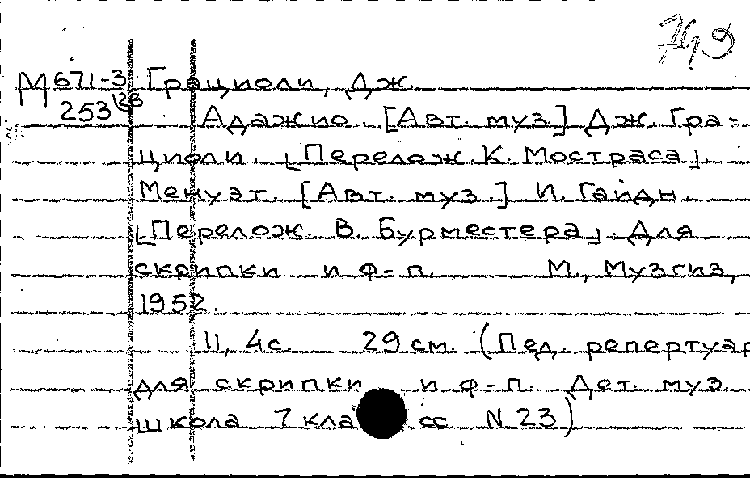 М 671-3 Грациоли, Дж.
253 Адажио. [Авт. муз.] Дж. Гра-
циоли. [Перелож. К. Мостраса].
Менуэт. [Авт. муз.] И. Гайдн.
[Перелож. В. Бурместера]. Для
скрипки и ф-п. М., Музгиз,
1952.
11, 4с. 29 см. (Пед. репертуар
для скрипки и ф-п. Дет. муз.
школа 7 класс N 23)